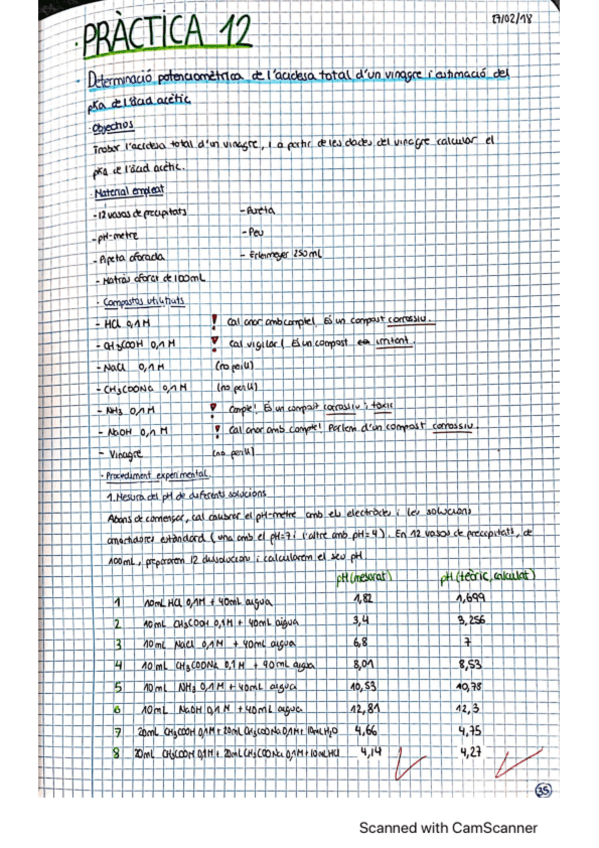 17/02/18
PRÀCTICA 12
Determinació potenciomètrica de l'acidesa total d'un vinagre i estimació del
pKa de l'àcid acètic
Objectius
Trobar l'acidesa total d'un vinagre, i a partir de les dades del vinagre calcular el
pKa de l'àcid acètic.
Material empleat
- 12 vasos de precipitats - Bureta
- pH-metre - Peu
- Pipeta aforada - Erlenmeyer 250 mL
- Matràs aforat de 100mL
Compostos utilitzats
- HCl 0,1M ! Cal anar amb compte! És un compost corrossiu.
- CH3COOH 0,1M ! Cal vigilar! És un compost irritant.
- NaCl 0,1M (no perill)
- CH3COONa 0,1M (no perill)
- NH3 0,1M ! Compte! És un compost corrossiu i tòxic
- NaOH 0,1M ! Cal anar amb compte! Parlem d'un compost corrossiu.
- Vinagre (no perill)
- Procediment experimental
1. Mesura del pH de diferents solucions
Abans de començar, cal calibrar el pH-metre amb els elèctrodes i les solucions
amortidores estàndard (una amb el pH=7 i l'altre amb pH=4). En 12 vasos de precipitats, de
100mL, prepararem 12 dissolucions i calcularem el seu pH.
pH (mesurat) pH (teòric, calculat)
1 10mL HCl 0,1M + 40mL aigua 1,82 1,699
2 10mL CH3COOH 0,1M + 40mL aigua 3,4 3,256
3 10mL NaCl 0,1M + 40mL aigua 6,8 7
4 10mL CH3COONa 0,1M + 40mL aigua 8,01 8,53
5 10mL NH3 0,1M + 40mL aigua 10,53 10,78
6 10mL NaOH 0,1M + 40mL aigua 12,81 12,3
7 20mL CH3COOH 0,1M + 20mL CH3COONa 0,1M + 10mL H2O 4,66 4,75
8 20mL CH3COOH 0,1M + 20mL CH3COONa 0,1M + 10mL HCl 4,14 4,27
35
Scanned with CamScanner